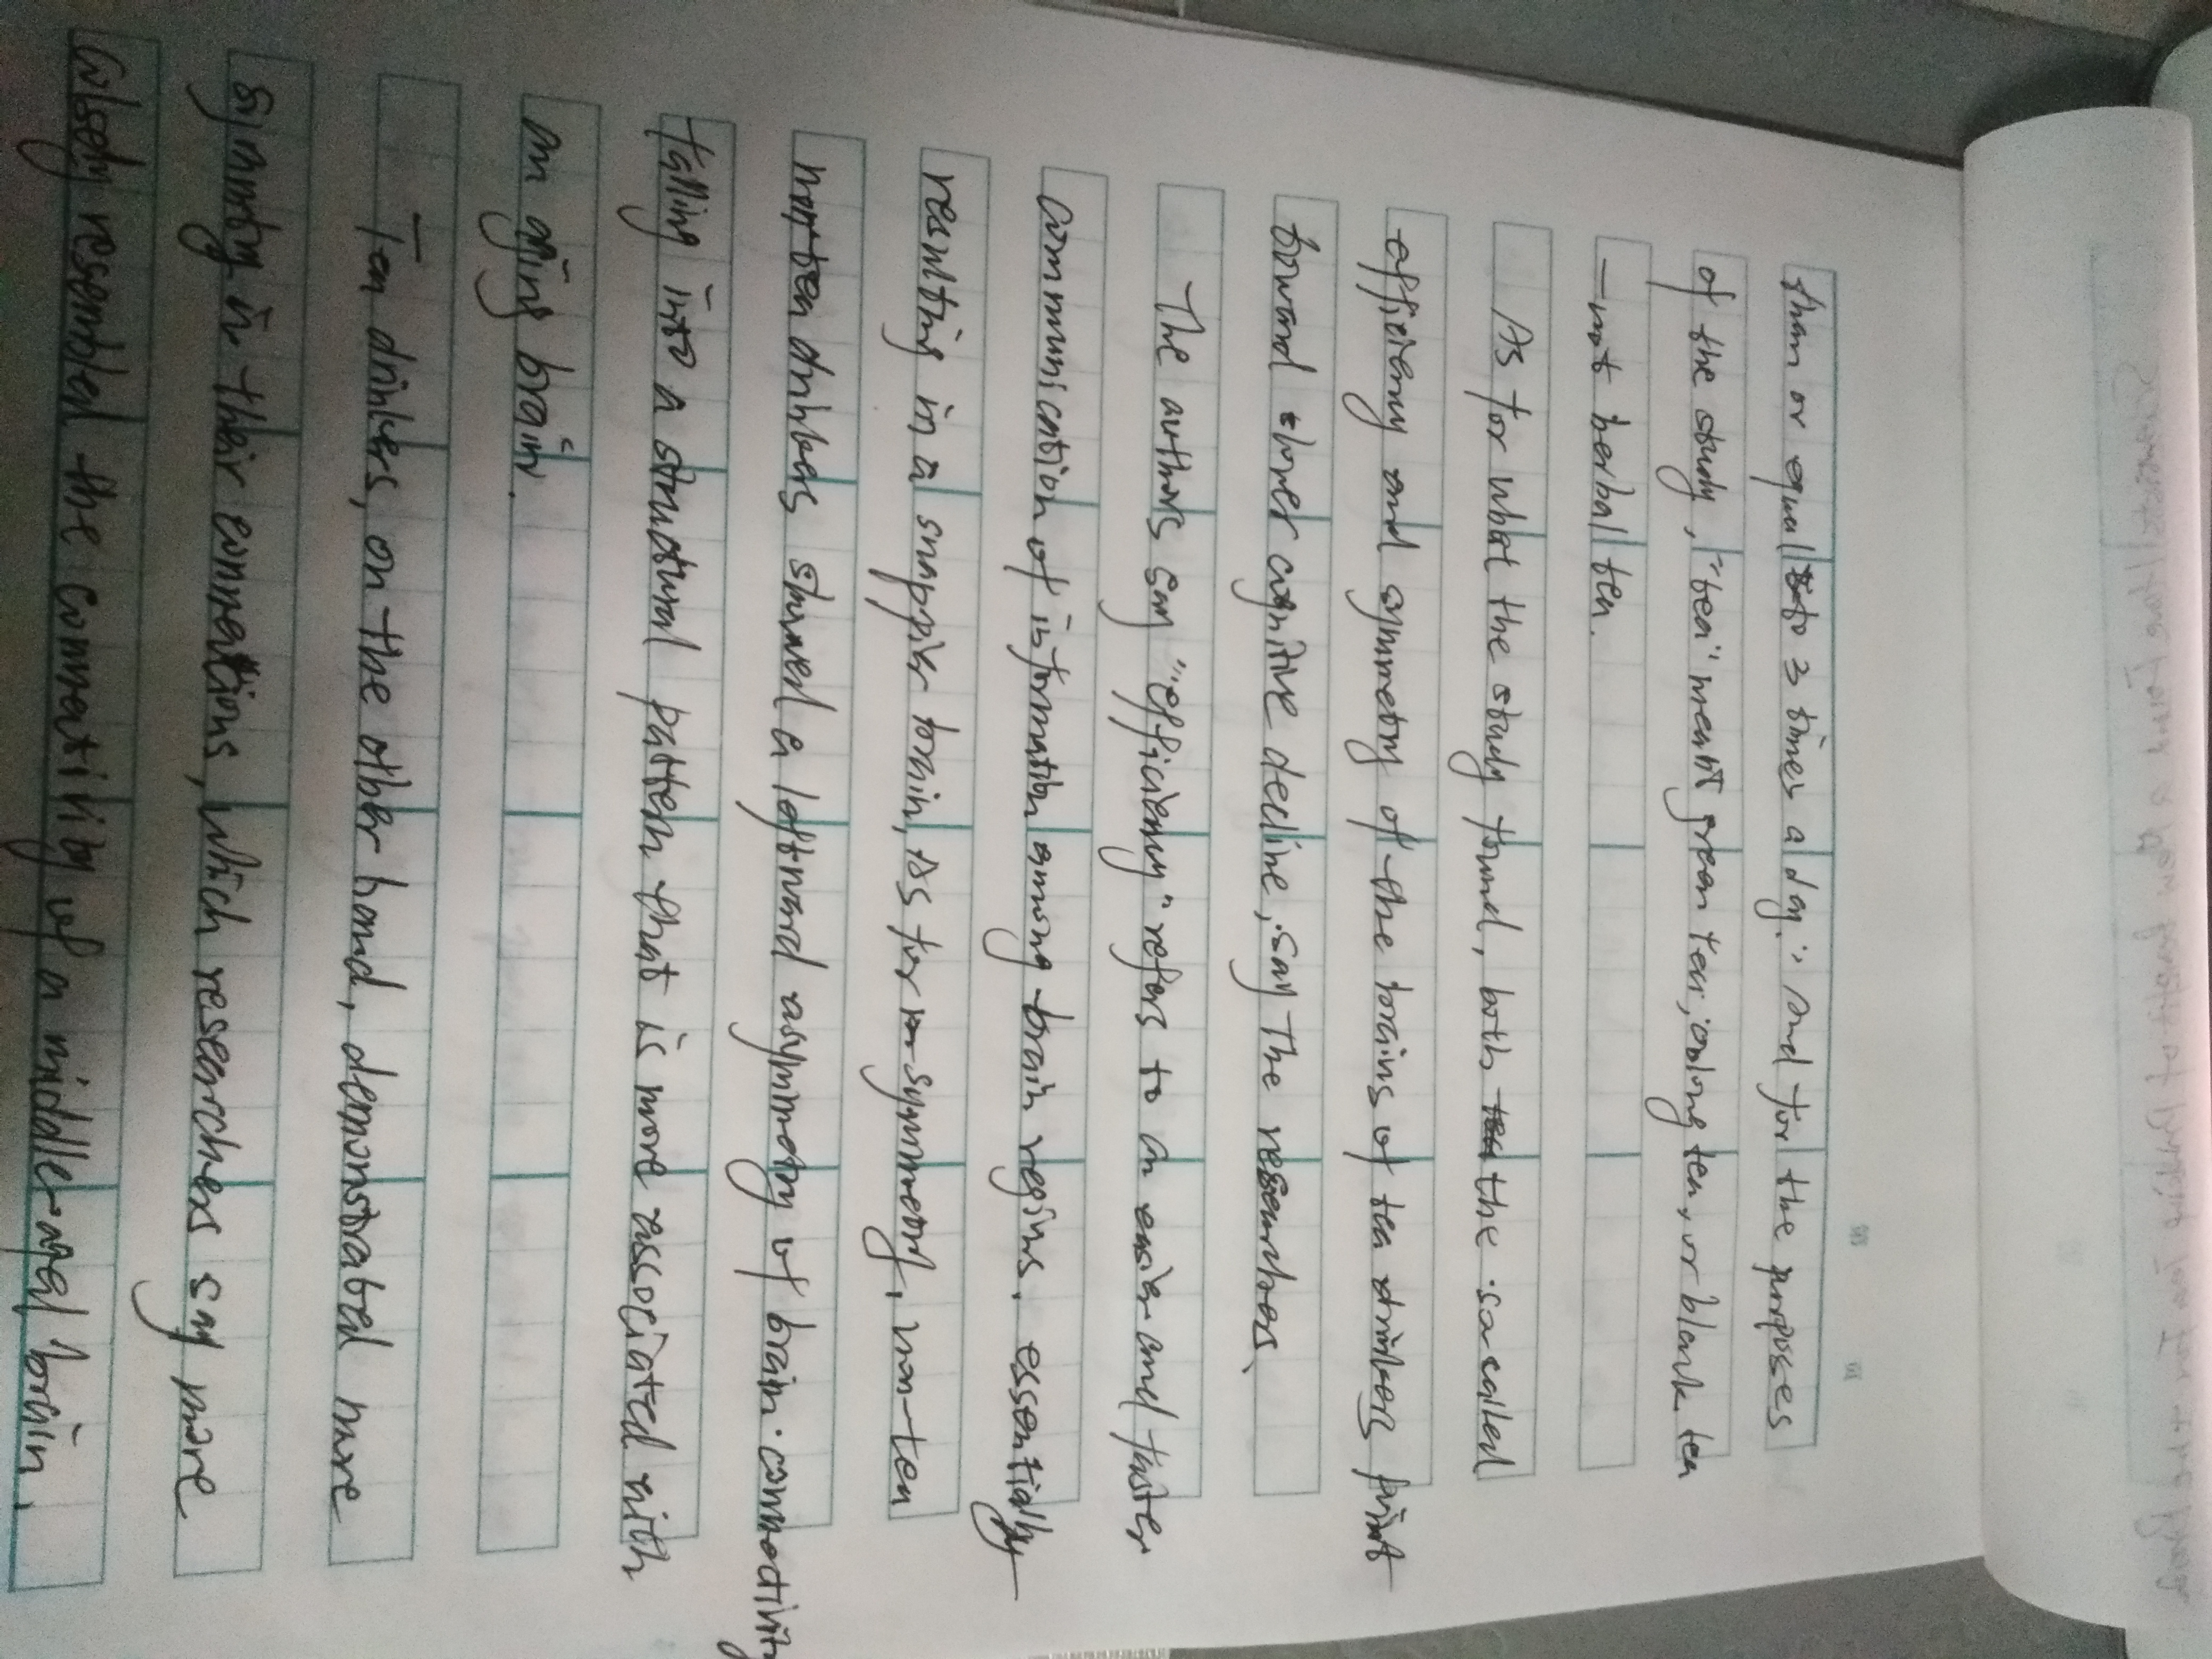 than or equal to 3 times a day." And for the purposes
of the study, "tea" meant green tea, oolong tea, or black tea
—not herbal tea.
As for what the study found, both the so called
efficieny and symmetry of the brains of tea drinkers point
toward slower cognitive decline, say The researchers.
The authors say "efficieny" refers to an easier and faster
communication of information among brain regins. essentially
resulting in a snappier brain, As for symmetry, non-tea
non-tea drinkers showed a leftward asymmetry of brain connectivity
falling into a structural pattern that is more associated with
an aging brain.
Tea drinkers, on the other hand, demonstrated more
symmetry in their connections, which researches say more
colsely resembled the connectivity of a middle-aged brain.